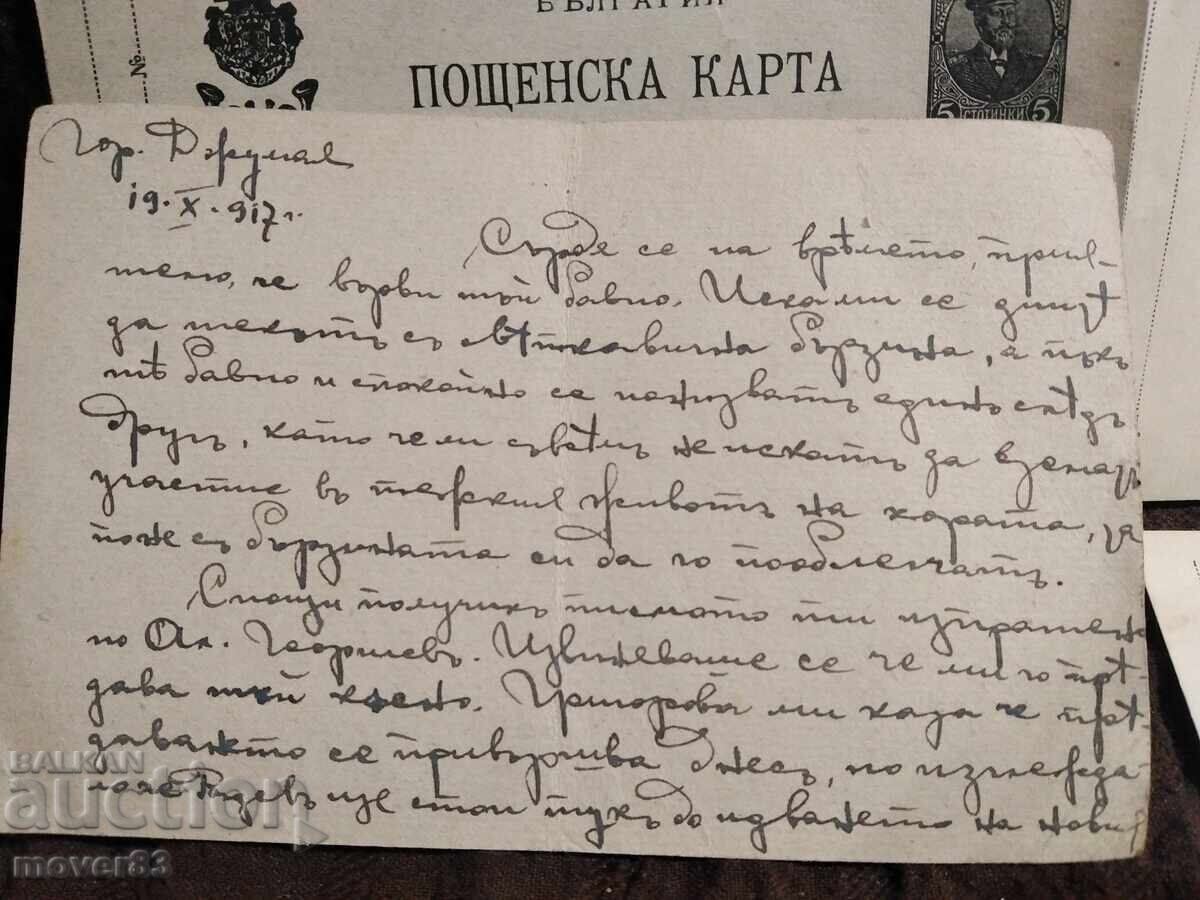 БЪЛГАРИЯ
№
ПОЩЕНСКА КАРТА
5 5
СТОТИНКИ
Гор. Джумая
19.X.917 г.
Сърдя се на врѣмето, прия-
телю, че върви тъй бавно. Иска ми се днитѣ
да текатъ съ свѣткавична бързина, а пъкъ
тѣ бавно и спокойно се низватъ единъ слѣдъ
другъ, като че ли съвсѣмъ не искатъ да взематъ
участие въ тежкия животъ на хората, за
поне съ бързината си да го пооблекчатъ.
Снощи получихъ писмото ти изпратено
по Ан. Георгиевъ. Извиняваше се че ми го прѣ-
дава тъй късно. Григорова ми каза че прѣ-
даването се привършва днесъ, но изглежда
че Радевъ ще стои тукъ до идването на новия
BALKAN
auction
mover83